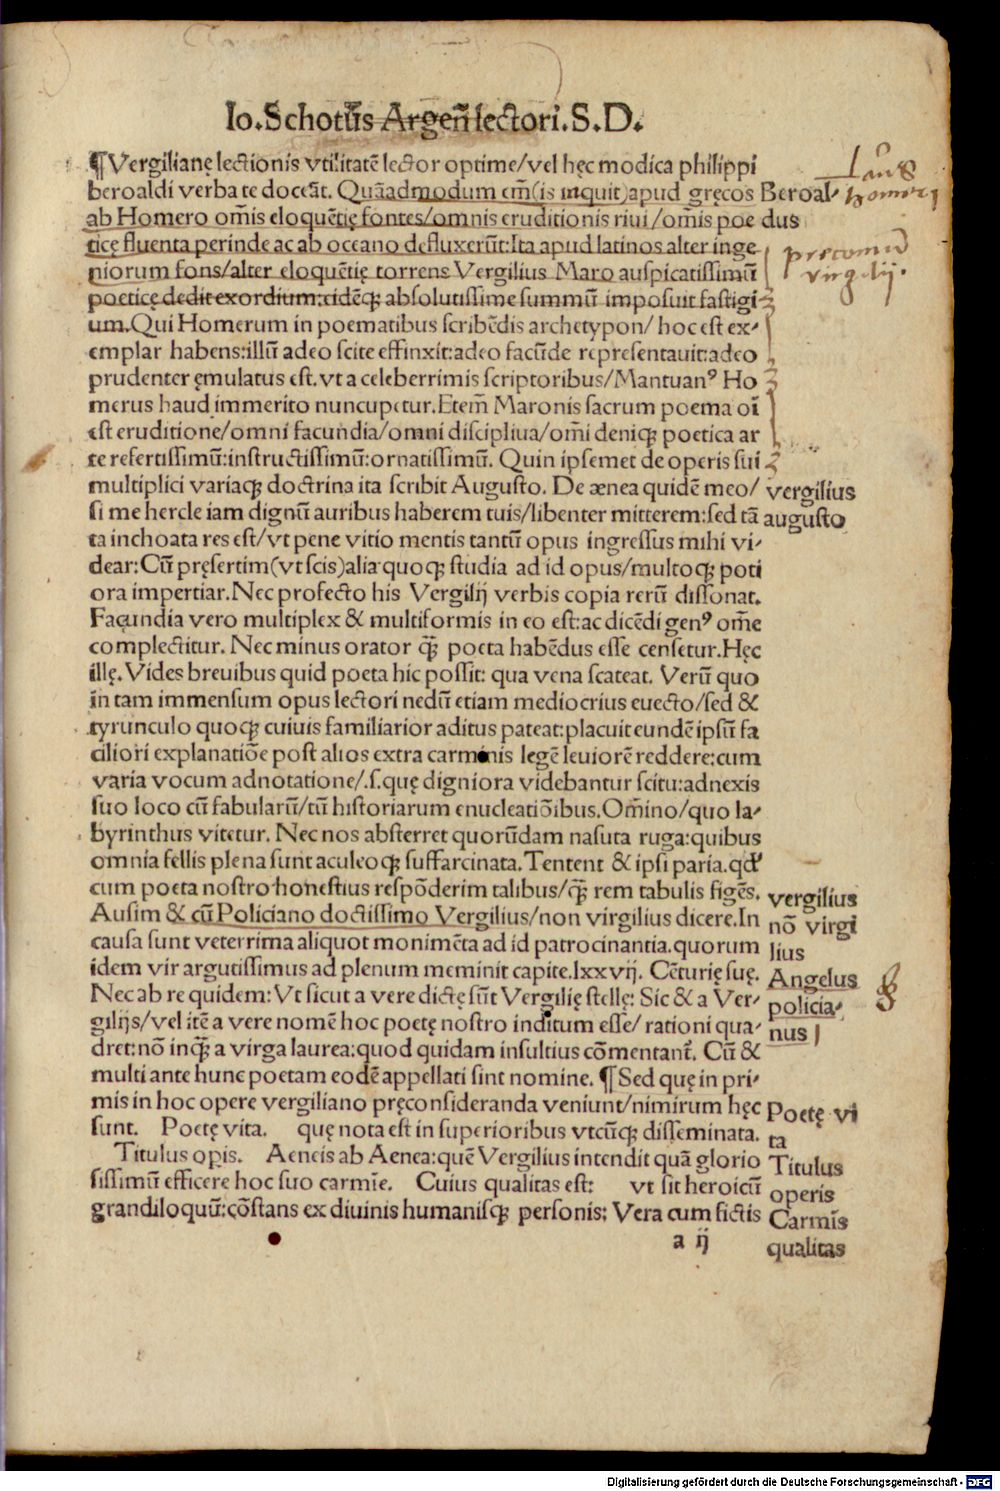 Io.Schotus̄ Argen̄ lectori.S.D.
¶Vergilianę lectionis vtilitatē lector optime/vel hęc modica philippi
beroaldi verba te doceāt. Quāadmodum em̄(is inquit)apud gręcos
ab Homero om̄is eloquētię fontes/omnis eruditionis riui/om̄is poe
ticę fluenta perinde ac ab oceano defluxerūt:Ita apud latinos alter inge
niorum fons/alter eloquētię torrens Vergilius Maro auspicatissimū
poeticę dedit exordium:eidēqꝫ absolutissime summū imposuit fastigi
um.Qui Homerum in poematibus scribēdis archetypon/ hoc est ex⸗
emplar habens:illū adeo scite effinxit:adeo facūde representauit:adeo
prudenter ęmulatus est.vt a celeberrimis scriptoribus/Mantuanꝰ Ho
merus haud immerito nuncupetur.Etem̄ Maronis sacrum poema oī
est eruditione/omni facundia/omni discipliua/om̄i deniqꝫ poetica ar
te refertissimū:instructissimū:ornatissimū. Quin ipsemet de operis sui
multiplici variaqꝫ doctrina ita scribit Augusto. De ænea quidē meo/
si me hercle iam dignū auribus haberem tuis/libenter mitterem:sed tā
ta inchoata res est/vt pene vitio mentis tantū opus ingressus mihi vi⸗
dear:Cū pręsertim(vt scis)alia quoqꝫ studia ad id opus/multoqꝫ poti
ora impertiar.Nec profecto his Vergilij verbis copia rerū dissonat.
Facundia vero multiplex & multiformis in eo est:ac dicēdi genꝰ om̄e
complectitur. Nec minus orator q̄ꝫ poeta habēdus esse censetur.Hęc
ille. Vides breuibus quid poeta hic possit: qua vena scateat. Verū quo
in tam immensum opus lectori nedū etiam mediocrius euecto/sed &
tyrunculo quoqꝫ cuiuis familiarior aditus pateat:placuit eundē ipsū fa
ciliori explanatiōe post alios extra carminis legē leuiorē reddere:cum
varia vocum adnotatione/.s.quę digniora videbantur scitu:adnexis
suo loco cū fabularū/tū historiarum enucleatiōibus.Om̄ino/quo la⸗
byrinthus vitetur. Nec nos absterret quorūdam nasuta ruga:quibus
omnia fellis plena sunt aculeoqꝫ suffarcinata.Tentent & ipsi paria.qđ
cum poeta nostro honestius respōderim talibus/q̄ꝫ rem tabulis figēs.
Ausim & cū Policiano doctissimo Vergilius/non virgilius dicere.In
causa sunt veterrima aliquot monimēta ad id patrocinantia.quorum
idem vir argutissimus ad plenum meminit capite.lxxvij. Cēturię suę.
Nec ab re quidem:Vt sicut a vere dictę sūt Vergilię stellę: Sic & a Ver⸗
gilijs/vel itē a vere nomē hoc poetę nostro inditum esse/ rationi qua⸗
dret:nō inq̄ꝫ a virga laurea:quod quidam insultius cōmentant̄. Cū &
multi ante hunc poetam eodē appellati sint nomine. ¶Sed quę in pri⸗
mis in hoc opere vergiliano pręconsideranda veniunt/nimirum hęc
sunt. Poetę vita. quę nota est in superioribus vtcūqꝫ disseminata.
Titulus opis. Aeneis ab Aenea:quē Vergilius intendit quā glorio
sissimū efficere hoc suo carmīe. Cuius qualitas est: vt sit heroicū
grandiloquū:cōstans ex diuinis humanisqꝫ personis: Vera cum fictis
a ij
Beroal⸗
dus
Laus
homeri
preconiū
virgilij.
vergilius
augusto
vergilius
nō virgi
lius
Angelus
policia⸗
nus
Poetę vi
ta
Titulus
operis
Carmīs
qualitas
Digitalisierung gefördert durch die Deutsche Forschungsgemeinschaft - DFG